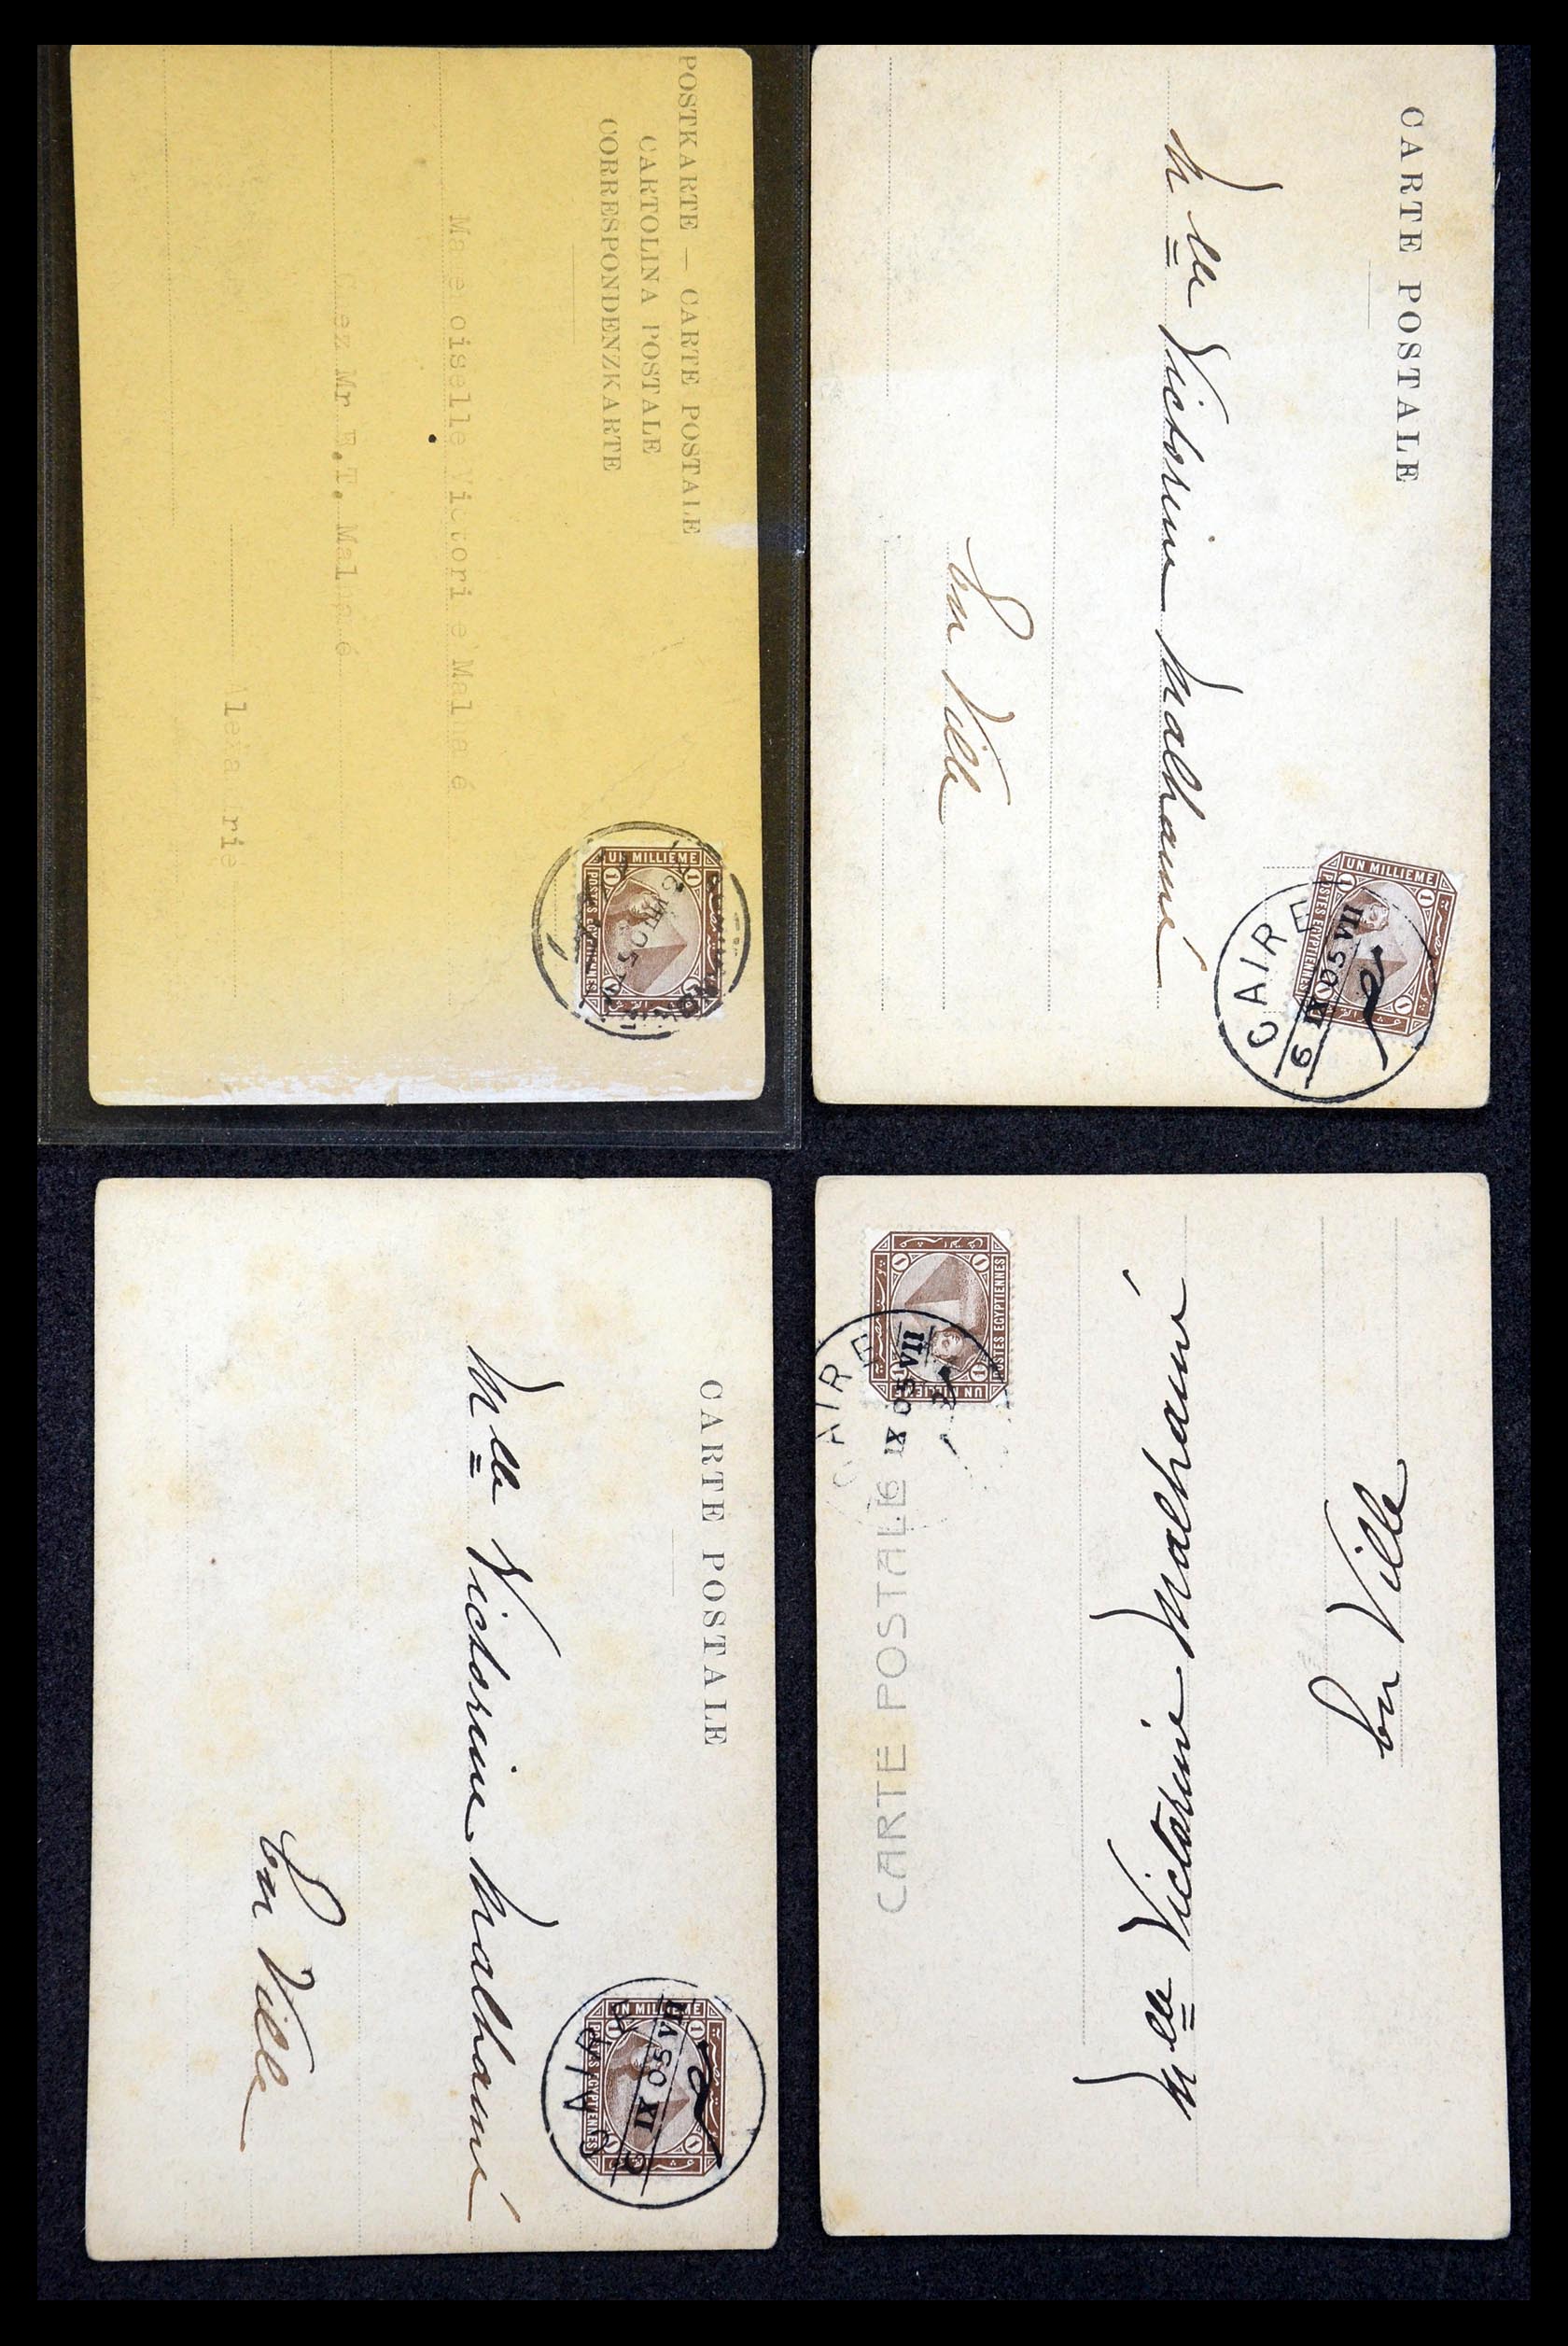 POSTKARTE — CARTE POSTALE
CARTOLINA POSTALE
CORRESPONDENZKARTE
Ma e oiselle Victori e Mal a é
ez Mr E.T. Mal é
Alexa rie
UN MILLIEME
POSTES EGYPTIENNES
1 1
VIII 05
CARTE POSTALE
Mlle Victorine Malhamé
En Ville
UN MILLIEME
POSTES EGYPTIENNES
1 1
CAIRE
6 IX 05 VII
CARTE POSTALE
Mlle Victorine Malhamé
En Ville
UN MILLIEME
POSTES EGYPTIENNES
1 1
CAIRE
6 IX 05 VII
CARTE POSTALE
Mlle Victorine Malhamé
En Ville
UN MILLIEME
POSTES EGYPTIENNES
1 1
CAIRE
6 IX 05 VII